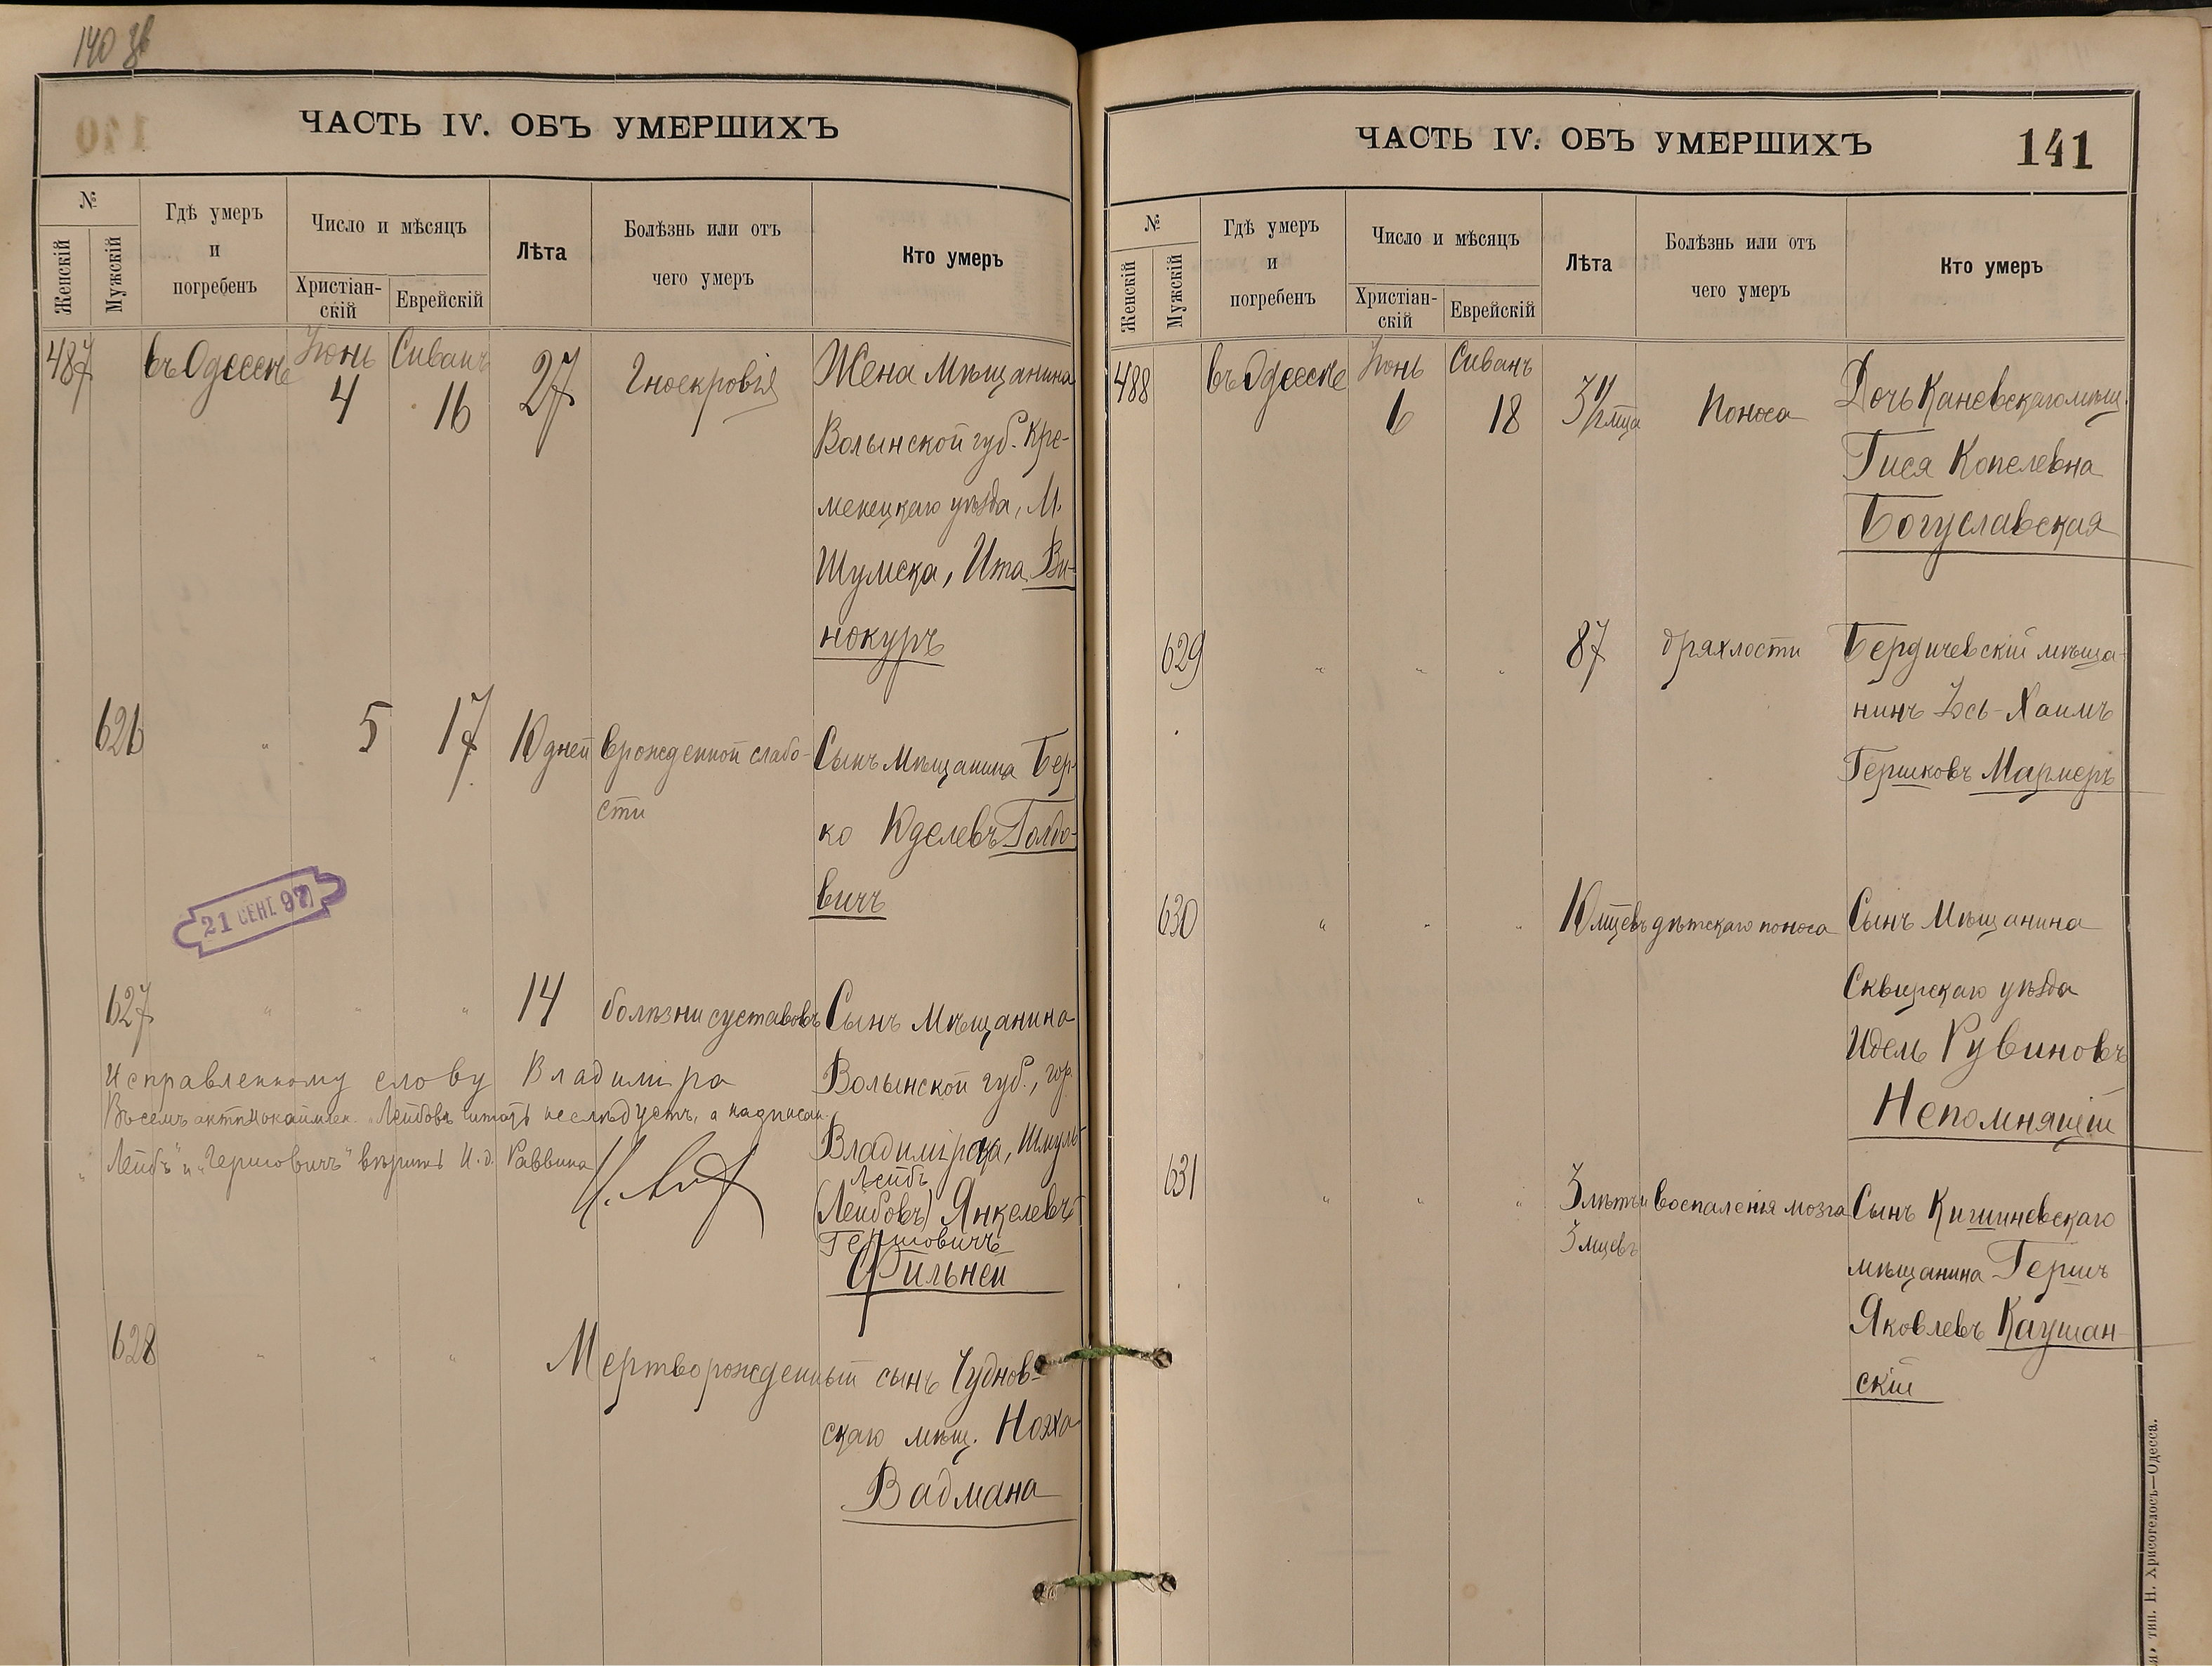 140 об
ЧАСТЬ IV. ОБЪ УМЕРШИХЪ
№
Женскій
Мужскій
Гдѣ умеръ
и
погребенъ
Число и мѣсяцъ
Христіан-
скій
Еврейскій
Лѣта
Болѣзнь или отъ
чего умеръ
Кто умеръ
487 въ Одессѣ Іюнь 4 Сиванъ 16 27 Гноекровія Жена Мѣщанина
Волынской губ. Кре-
менецкаго уѣзда, М.
Шумска, Ита Ви-
нокуръ
626 " 5 17 10 дней врожденной слабо- Сынъ Мѣщанина Бер-
сти
ко Юделевъ Голдо-
вичъ
21 СЕНТ 97
627 " " " 14 болѣзни суставовъ Сынъ Мѣщанина
Волынской губ., гор.
Владимірца, Шмуль
Лейбъ
(Лейбовъ) Янкелевъ
Гершовичъ
Фильней
Исправленному слову Владиміра
Лейбовъ читать не слѣдуетъ, а надписан.
"Лейбъ" и "Гершовичъ" вѣрить И. д. Раввина
628 " " " Мертворожденный сынъ Чуднов-
скаго мѣщ. Ноэха
Вадмана
ЧАСТЬ IV. ОБЪ УМЕРШИХЪ
141
№
Женскій
Мужскій
Гдѣ умеръ
и
погребенъ
Число и мѣсяцъ
Христіан-
скій
Еврейскій
Лѣта
Болѣзнь или отъ
чего умеръ
Кто умеръ
488 въ Одессѣ Іюнь 6 Сиванъ 18 3 1/2 мца Поноса Дочь Каневскаго мѣщ.
Гися Копелевна
Богуславская
629 " " " 87 дряхлости Бердичевскій мѣща-
нинъ Іось-Хаимъ
Гершковъ Мармеръ
630 " " " 10 мцевъ дѣтскаго поноса Сынъ Мѣщанина
Сквирскаго уѣзда
Идель Рувиновъ
Непомнящій
631 " " " 3 лѣтъ и воспаленія мозга Сынъ Кишиневскаго
3 мцевъ
мѣщанина Гершъ
Яковлевъ Каушан-
скій
тип. Н. Хрисогелосъ—Одесса.